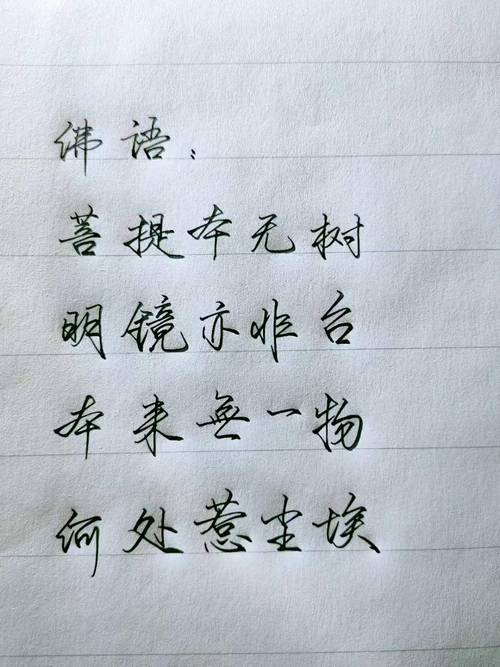 佛语：
菩提本无树
明镜亦非台
本来無一物
何处惹尘埃